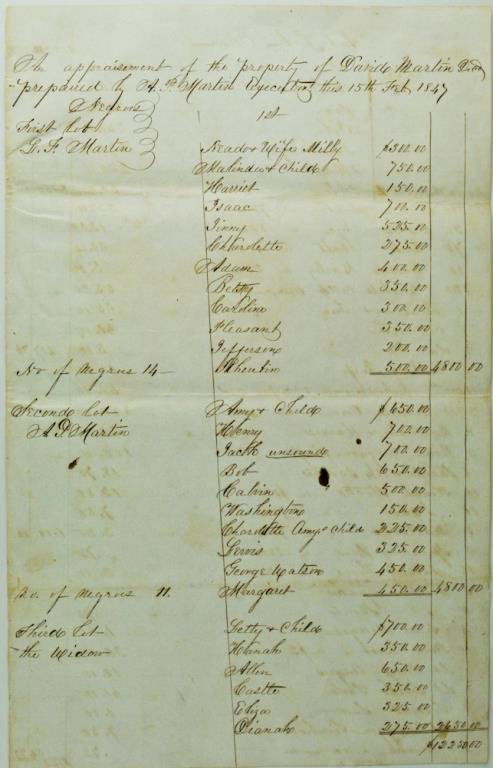 An appraisement of the property of David Martin
prepared by A. P. Martin Executor this 15th Feb 1847
Negroes 1st
First Lot
G. F. Martin Neado & Wife Milly $500.00
Malinda & Child 750.00
Harriet 150.00
Isaac 700.00
Jinny 525.00
Charlotte 275.00
Adam 400.00
Betty 350.00
Caroline 300.00
Pleasant 350.00
Jefferson 200.00
No of Negroes 14 500.00 4800.00
Second Lot Amy & Child $650.00
A P Martin Henry 700.00
Jack unsound 700.00
Bob 650.00
Calvin 500.00
Washington 150.00
Charlotte Amy & Child 225.00
Lewis 325.00
George Watson 450.00
No. of Negroes 11. Margaret 450.00 4800.00
Third Lot Letty & Child $700.00
the Widow Hanah 350.00
Allen 650.00
350.00
Eliza 325.00
Dianah 275.00 2650.00
$12250.00